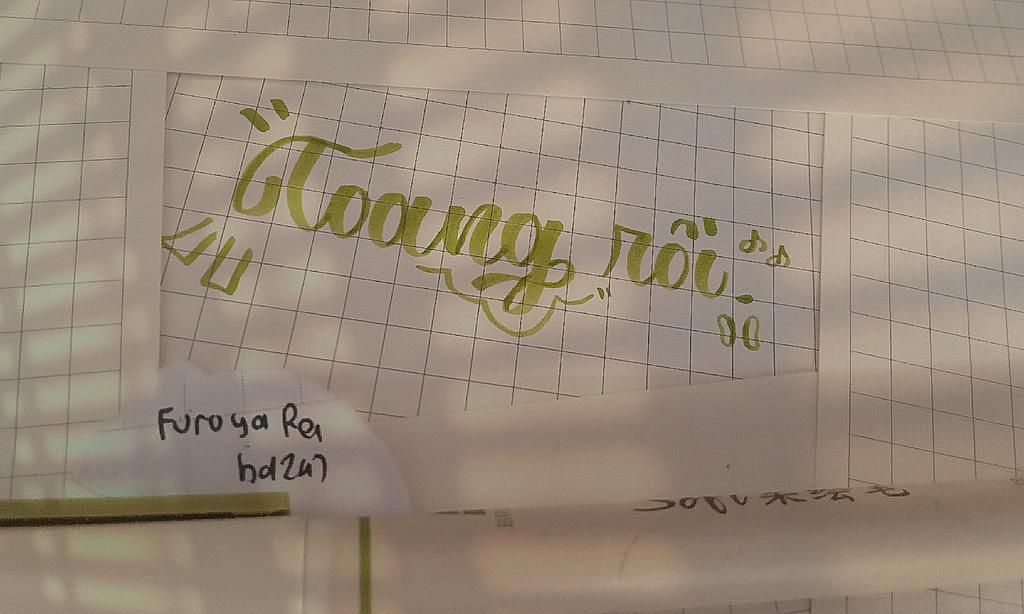 Toang rồi.
Furoya Rei
hd247